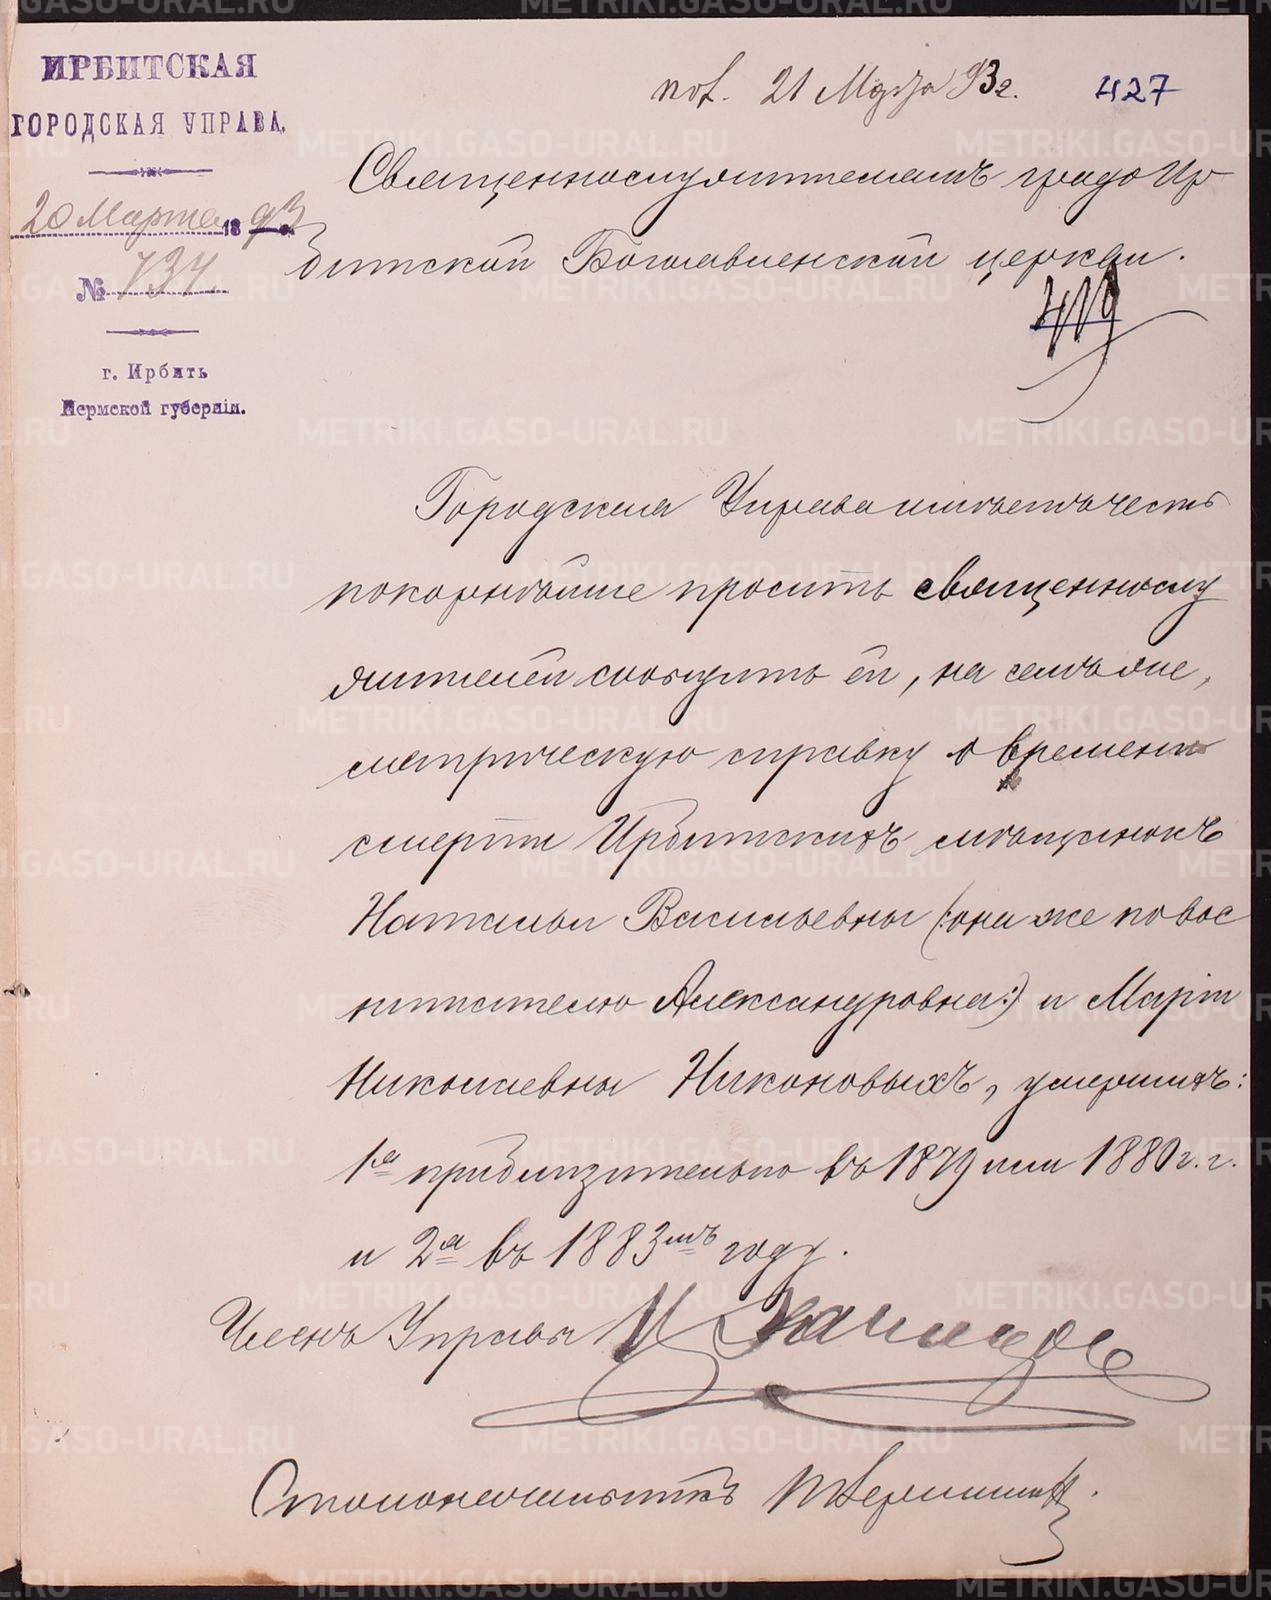 ИРБИТСКАЯ
ГОРОДСКАЯ УПРАВА,
20 Марта 1893 г.
№ 737.
г. Ирбить
Пермской губерніи.
пол. 21 Марта 93 г. 427
Священнослужителямъ градо Ир
битской Богоявленской церкви.
Городская Управа имѣетъ честь
покорнѣйше просить священнослу
жителей сообщить ей, на семъ же,
метрическую справку о времени
смерти Ирбитскихъ мѣщанокъ
Натальи Васильевны (:она же по вос
питателю Александровна:) и Маріи
Николаевны Никоновыхъ, умершихъ:
1ª приблизительно въ 1879 или 1880 г.г.
и 2ª въ 1883мъ году.
Членъ Управы И
Столоначальникъ
METRIKI.GASO-URAL.RU